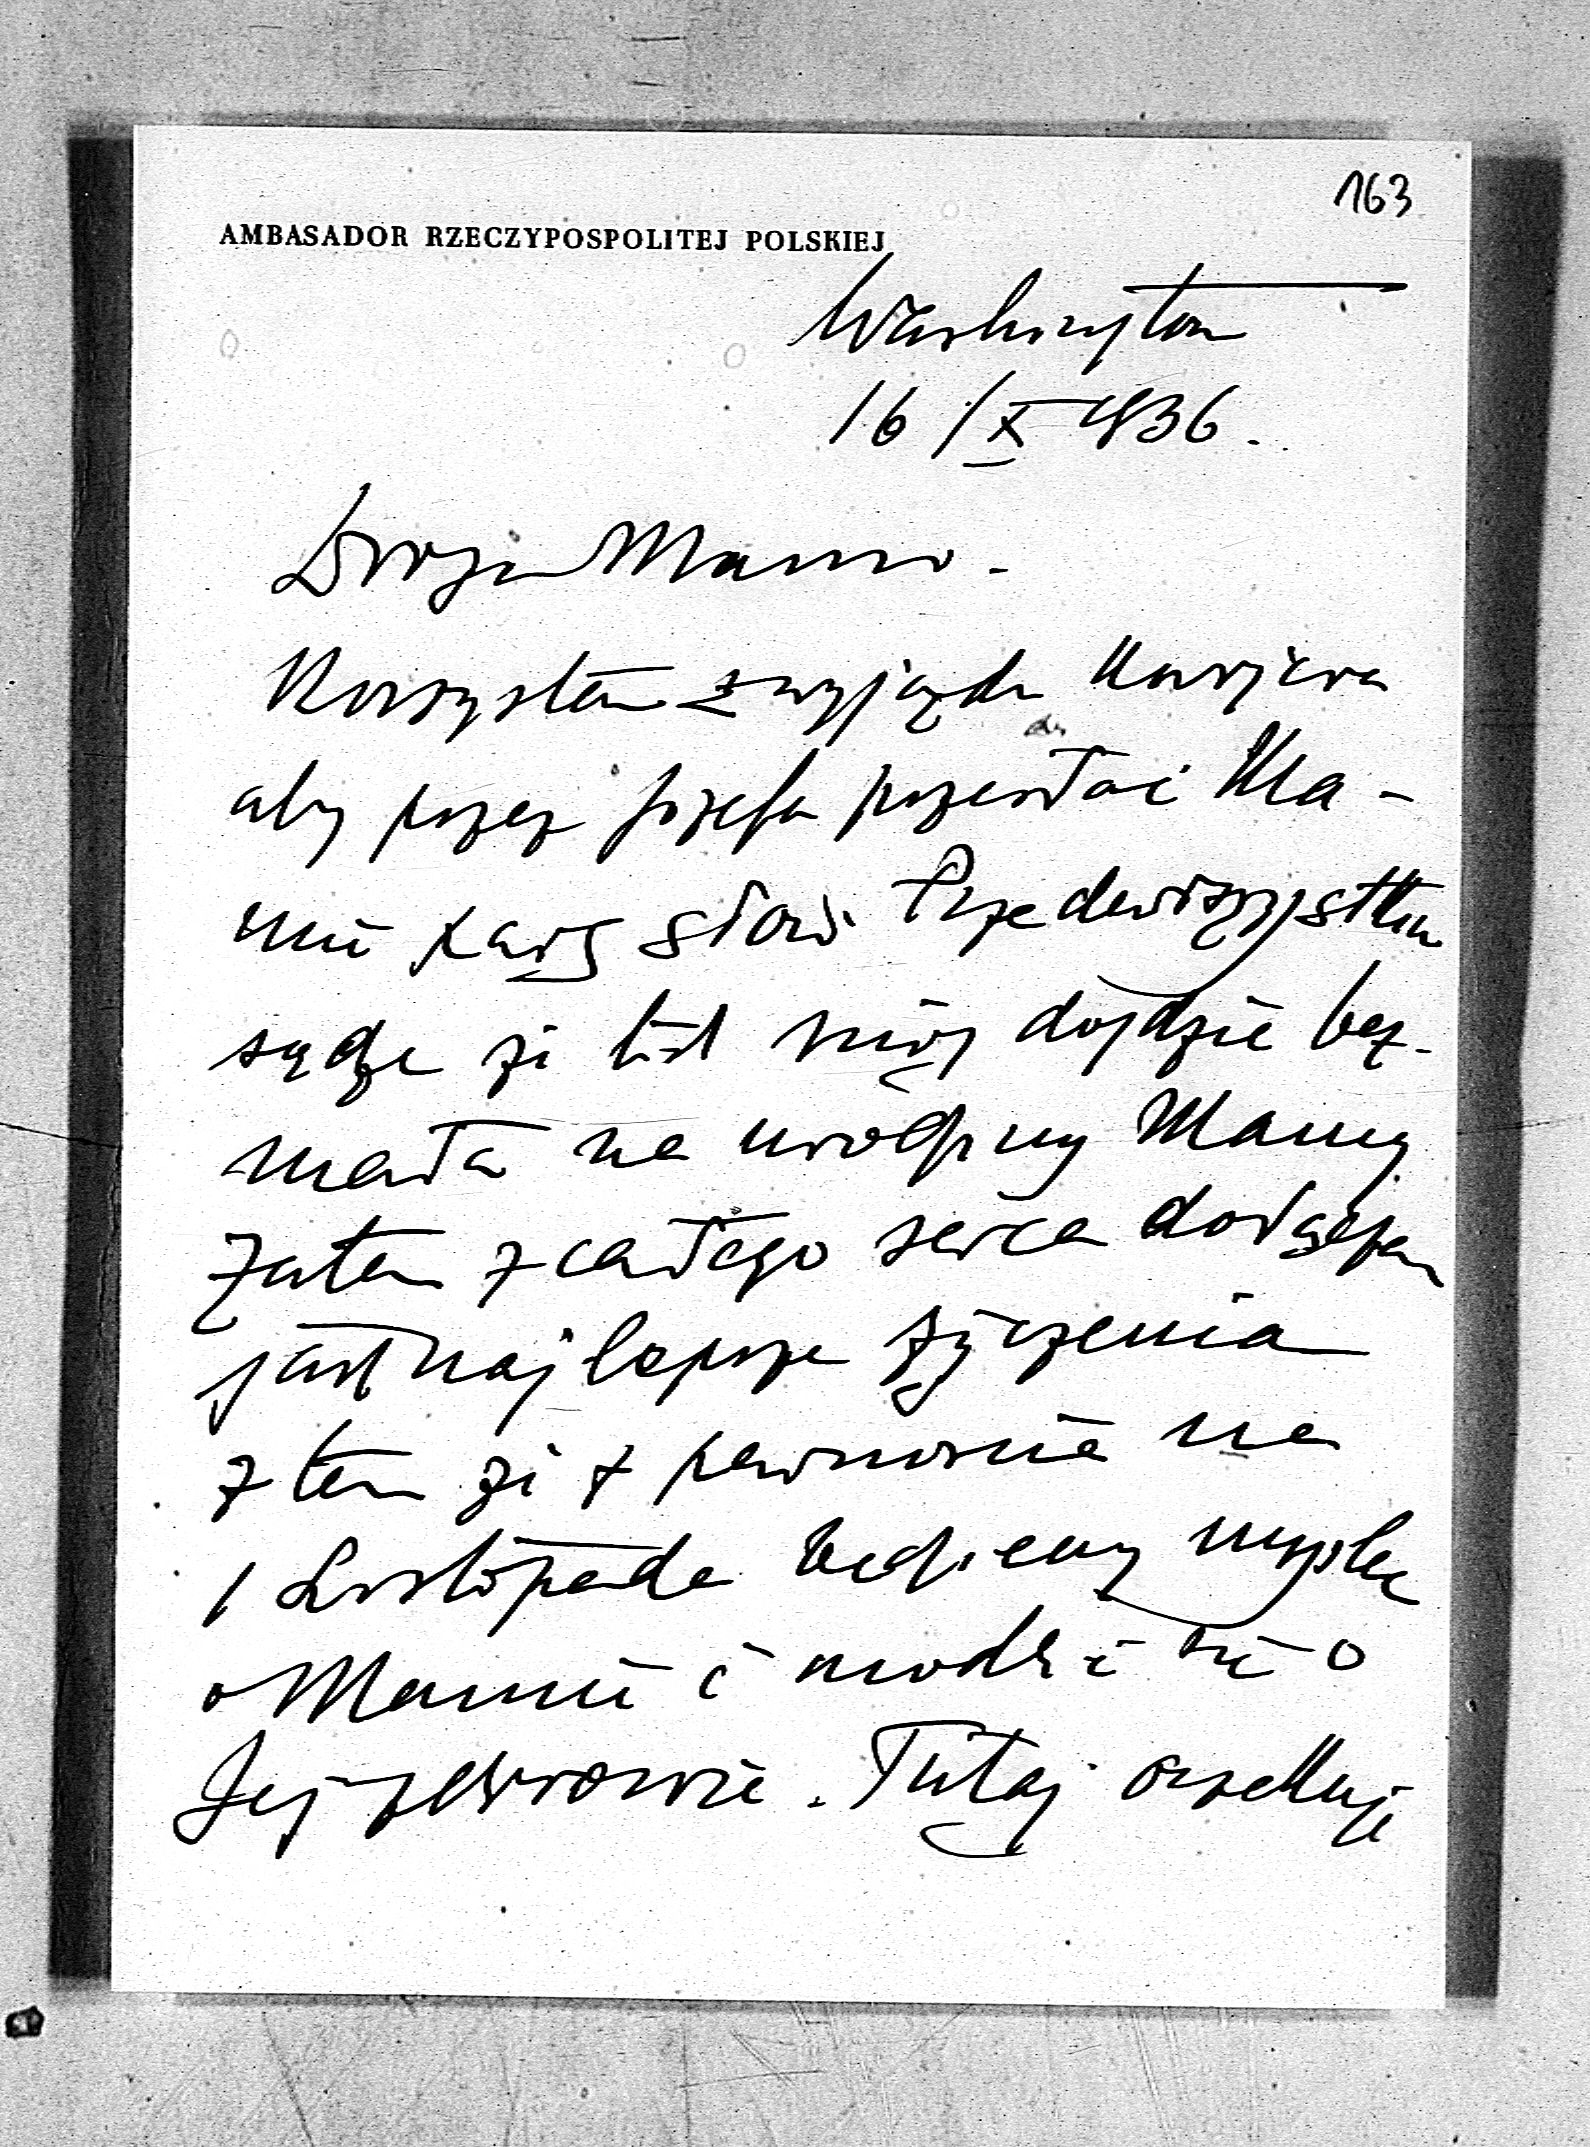 163
AMBASADOR RZECZYPOSPOLITEJ POLSKIEJ
Washington
16/X 1936.
Droga Mamo.
Korzystam z wyjazdu Kurjera
aby przez Józefa przesłać Ma-
mie parę słów. Przedewszystkim
sądzę że list mój dojdzie bez-
mała na urodziny Mamy
zatem z całego serca dołączam
jaknajlepsze życzenia
z tem że z pewnością na
1 Listopada będziemy myśleć
o Mamie i modlić się o
Jej zdrowie. Tutaj oczekuję